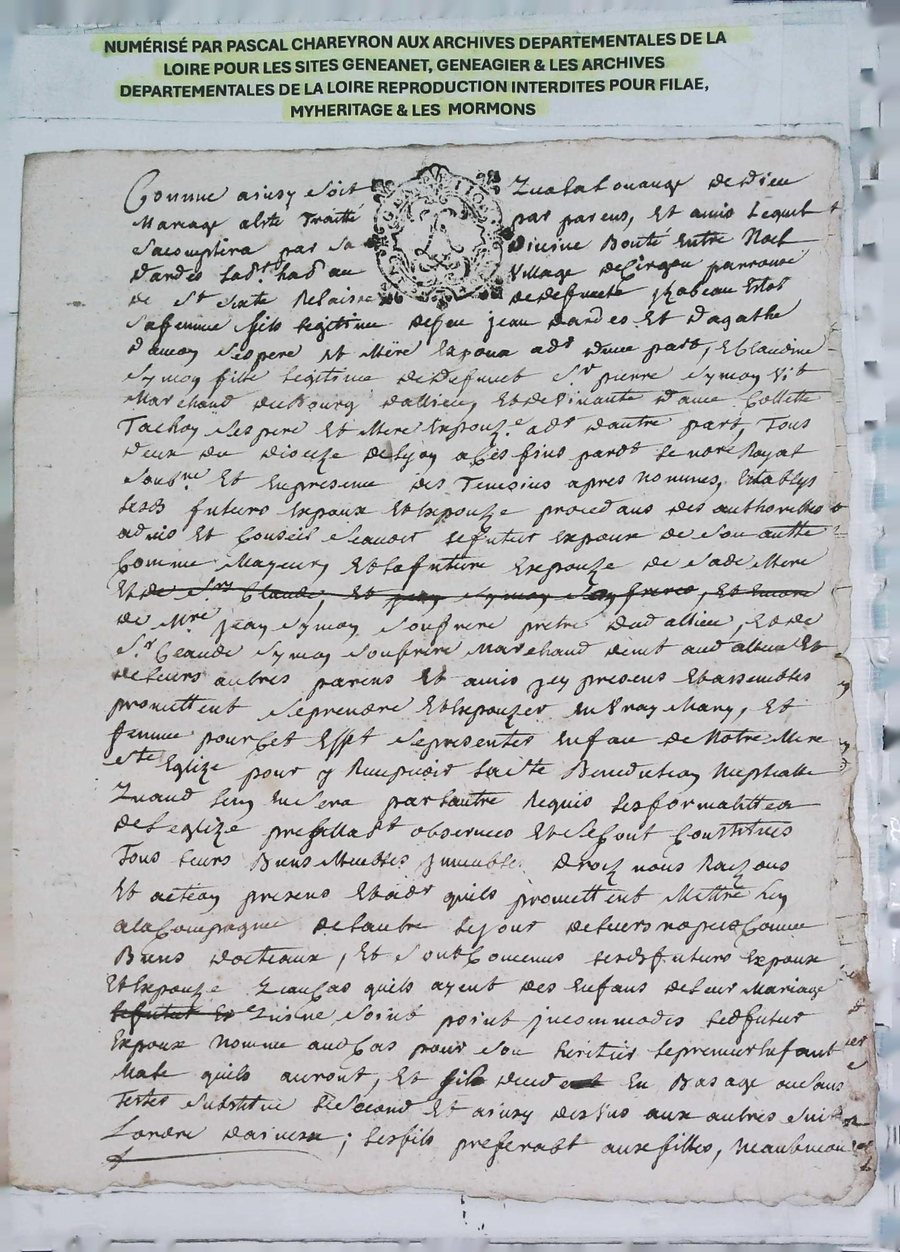 NUMÉRISÉ PAR PASCAL CHAREYRON AUX ARCHIVES DEPARTEMENTALES DE LA
LOIRE POUR LES SITES GENEANET, GENEAGIER & LES ARCHIVES
DEPARTEMENTALES DE LA LOIRE REPRODUCTION INTERDITES POUR FILAE,
MYHERITAGE & LES MORMONS
Comme ainsy soit Qua la Louange de Dieu
Mariage a ete Traitté par parens, et amis Lequel
sacomplira par sa Divine Bonté Entre Noel
dardes Lad.t had au Village de parroisse
de St Sixte Relaissé de defuncte
sa femme fils legitime de feu jean dardes Et dagathe
ses pere et Mere Expoux ad.r dune part, Et Claudine
Symon fille legitime de defunct Sr pierre Symon Vit
Marchand du Bourg dallieu, Et de Vivante dame Collette
Tachon ses pere Et Mere Expouze ad.r dautre part, Tous
deux du dioceze de Lyon a Ces fins pard.t le no.re Royal
soub.ne Et En presence des Temoins apres nommes, Establys
lesd. futurs Expoux Et Expouze procedans des authorittes
advis Et Conseil scavoir le futur Expoux de son autte
Comme Mageur, Et la future Expouze de sad. Mere
Et de Srs Claude, Et jean Symon ses freres, Et Encore
de Mre jean Symon son frere pretre dud. allieu, Et de
Sr Claude Symon son frere Marchand dem.t aud. allieu Et
de Leurs autres parens Et amis jcy presens Et assembles
promettent se prendre Et Expouzer En Vray Mary, Et
femme pour Cet Effet se presenter En face de Notre Mere
Ste Eglize pour y Recepvoir la ditte Benediction Nuptialle
Quand lun En sera par lautre Requis les formalittes
de Leglize prealla.t observees Et se sont Constitues
Tous leurs Biens Meubles jmeubles droiz noms Raizons
Et action presens Et ad.r quils promettent Mettre En
a la Compagnie de Lautre le jour de leurs nopces Comme
Biens dotteaux, Et sont Convenus lesd. futurs Expoux
Et Expouze Quau Cas quils ayent des Enfans de Leur Mariage
le futur Ex Quisne soint point jncommodes led. futur
Expoux nomme aud. Cas pour son heritier le premier Enfant
Male quils auront, Et sil decedoit En Bas age ou sans
Tester substitue le second Et ainsy des Uns aux autres suivt
Lordre dainesse ; les fils preferabt aux filles, neantmoin